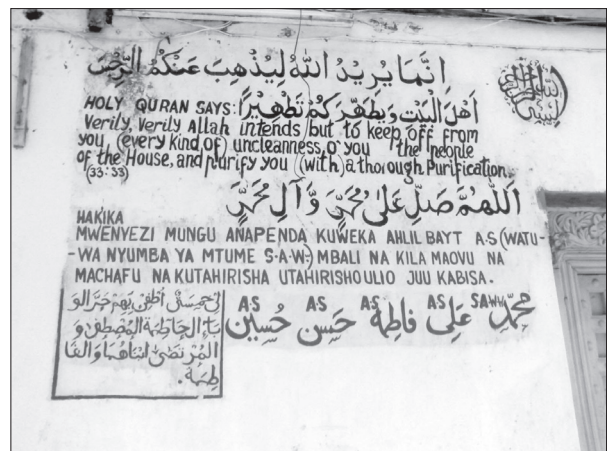 اِنَّمَا يُرِيْدُ اللّٰهُ لِيُذْهِبَ عَنْكُمُ الرِّجْسَ
HOLY QURAN SAYS: اَهْلَ الْبَيْتِ وَيُطَهِّرَكُمْ تَطْهِيْرًا
Verily, Verily Allah intends but to keep off from
you (every kind of) uncleanness, o' you the people
of the House, and purify you (with) a thorough Purification.
(33:33)
اَللّٰهُمَّ صَلِّ عَلٰى مُحَمَّدٍ وَّآلِ مُحَمَّدٍ
HAKIKA
MWENYEZI MUNGU ANAPENDA KUWEKA AHLIL BAYT A.S (WATU-
-WA NYUMBA YA MTUME S.A.W.) MBALI NA KILA MAOVU NA
MACHAFU NA KUTAHIRISHA UTAHIRISHO ULIO JUU KABISA.
مُحَمَّد S.A.W.W عَلِى A.S فَاطِمَة A.S حَسَن A.S حُسِين A.S
لِىْ خَمْسَةٌ اُطْفِىْ بِهِمْ حَرَّ الْوَ
بَاءِ الْحَاطِمَةِ الْمُصْطَفٰى وَ
الْمُرْتَضٰى ابْنَاهُمَا وَالْفَا
طِمَة.